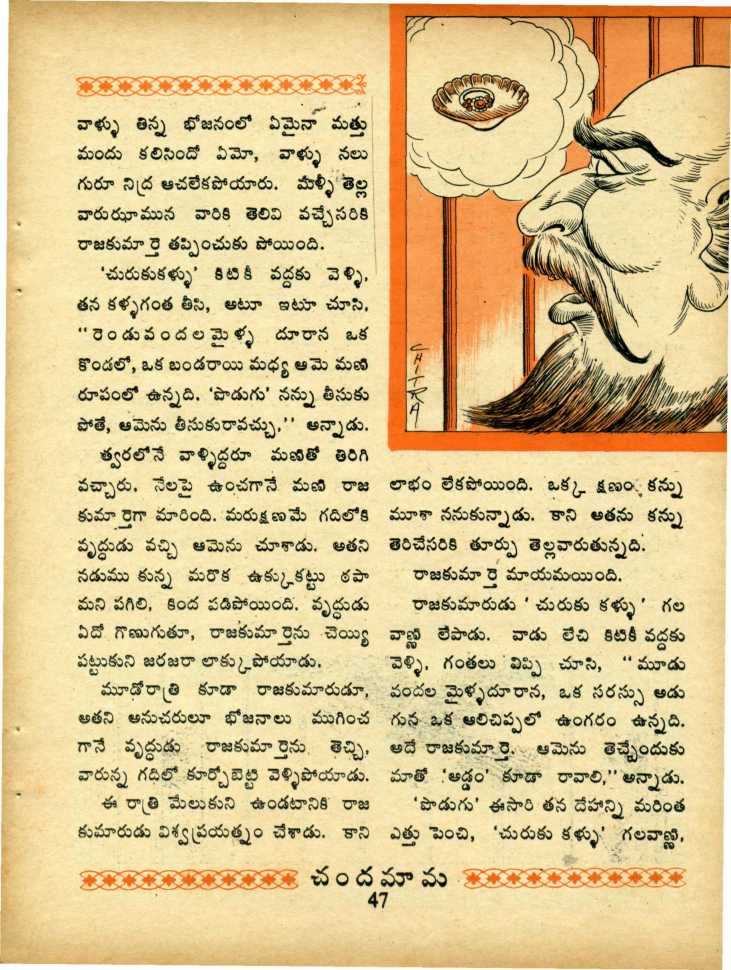 వాళ్ళు తిన్న భోజనంలో ఏమైనా మత్తు
మందు కలిసిందో ఏమో, వాళ్ళు నలు
గురూ నిద్ర ఆచలేకపోయారు. మళ్ళీ తెల్ల
వారుఝామున వారికి తెలివి వచ్చేసరికి
రాజకుమార్తె తప్పించుకు పోయింది.
'చురుకుకళ్ళు' కిటికీ వద్దకు వెళ్ళి,
తన కళ్ళగంత తీసి, అటూ ఇటూ చూసి,
"రెండువందలమైళ్ళ దూరాన ఒక
కొండలో, ఒక బండరాయి మధ్య ఆమె మణి
రూపంలో ఉన్నది. 'పొడుగు' నన్ను తీసుకు
పోతే, ఆమెను తీసుకురావచ్చు," అన్నాడు.
త్వరలోనే వాళ్ళిద్దరూ మణితో తిరిగి
వచ్చారు. నేలపై ఉంచగానే మణి రాజ
కుమార్తెగా మారింది. మరుక్షణమే గదిలోకి
వృద్ధుడు వచ్చి ఆమెను చూశాడు. అతని
నడుము కున్న మరొక ఉక్కుకట్టు ఠపా
మని పగిలి, కింద పడిపోయింది. వృద్ధుడు
ఏదో గొణుగుతూ, రాజకుమార్తెను చెయ్యి
పట్టుకుని జరజరా లాక్కుపోయాడు.
మూడోరాత్రి కూడా రాజకుమారుడూ,
అతని అనుచరులూ భోజనాలు ముగించ
గానే వృద్ధుడు రాజకుమార్తెను తెచ్చి,
వారున్న గదిలో కూర్చోబెట్టి వెళ్ళిపోయాడు.
ఈ రాత్రి మేలుకుని ఉండటానికి రాజ
కుమారుడు విశ్వప్రయత్నం చేశాడు. కాని
CHITRA
లాభం లేకపోయింది. ఒక్క క్షణం కన్ను
మూశా ననుకున్నాడు. కాని అతను కన్ను
తెరిచేసరికి తూర్పు తెల్లవారుతున్నది.
రాజకుమార్తె మాయమయింది.
రాజకుమారుడు 'చురుకు కళ్ళు' గల
వాణ్ణి లేపాడు. వాడు లేచి కిటికీ వద్దకు
వెళ్ళి, గంతలు విప్పి చూసి, "మూడు
వందల మైళ్ళదూరాన, ఒక సరస్సు అడు
గున ఒక ఆలిచిప్పలో ఉంగరం ఉన్నది.
అదే రాజకుమార్తె. ఆమెను తెచ్చేందుకు
మాతో 'అడ్డం' కూడా రావాలి," అన్నాడు.
'పొడుగు' ఈసారి తన దేహాన్ని మరింత
ఎత్తు పెంచి, 'చురుకు కళ్ళు' గలవాణ్ణి,
చందమామ
47